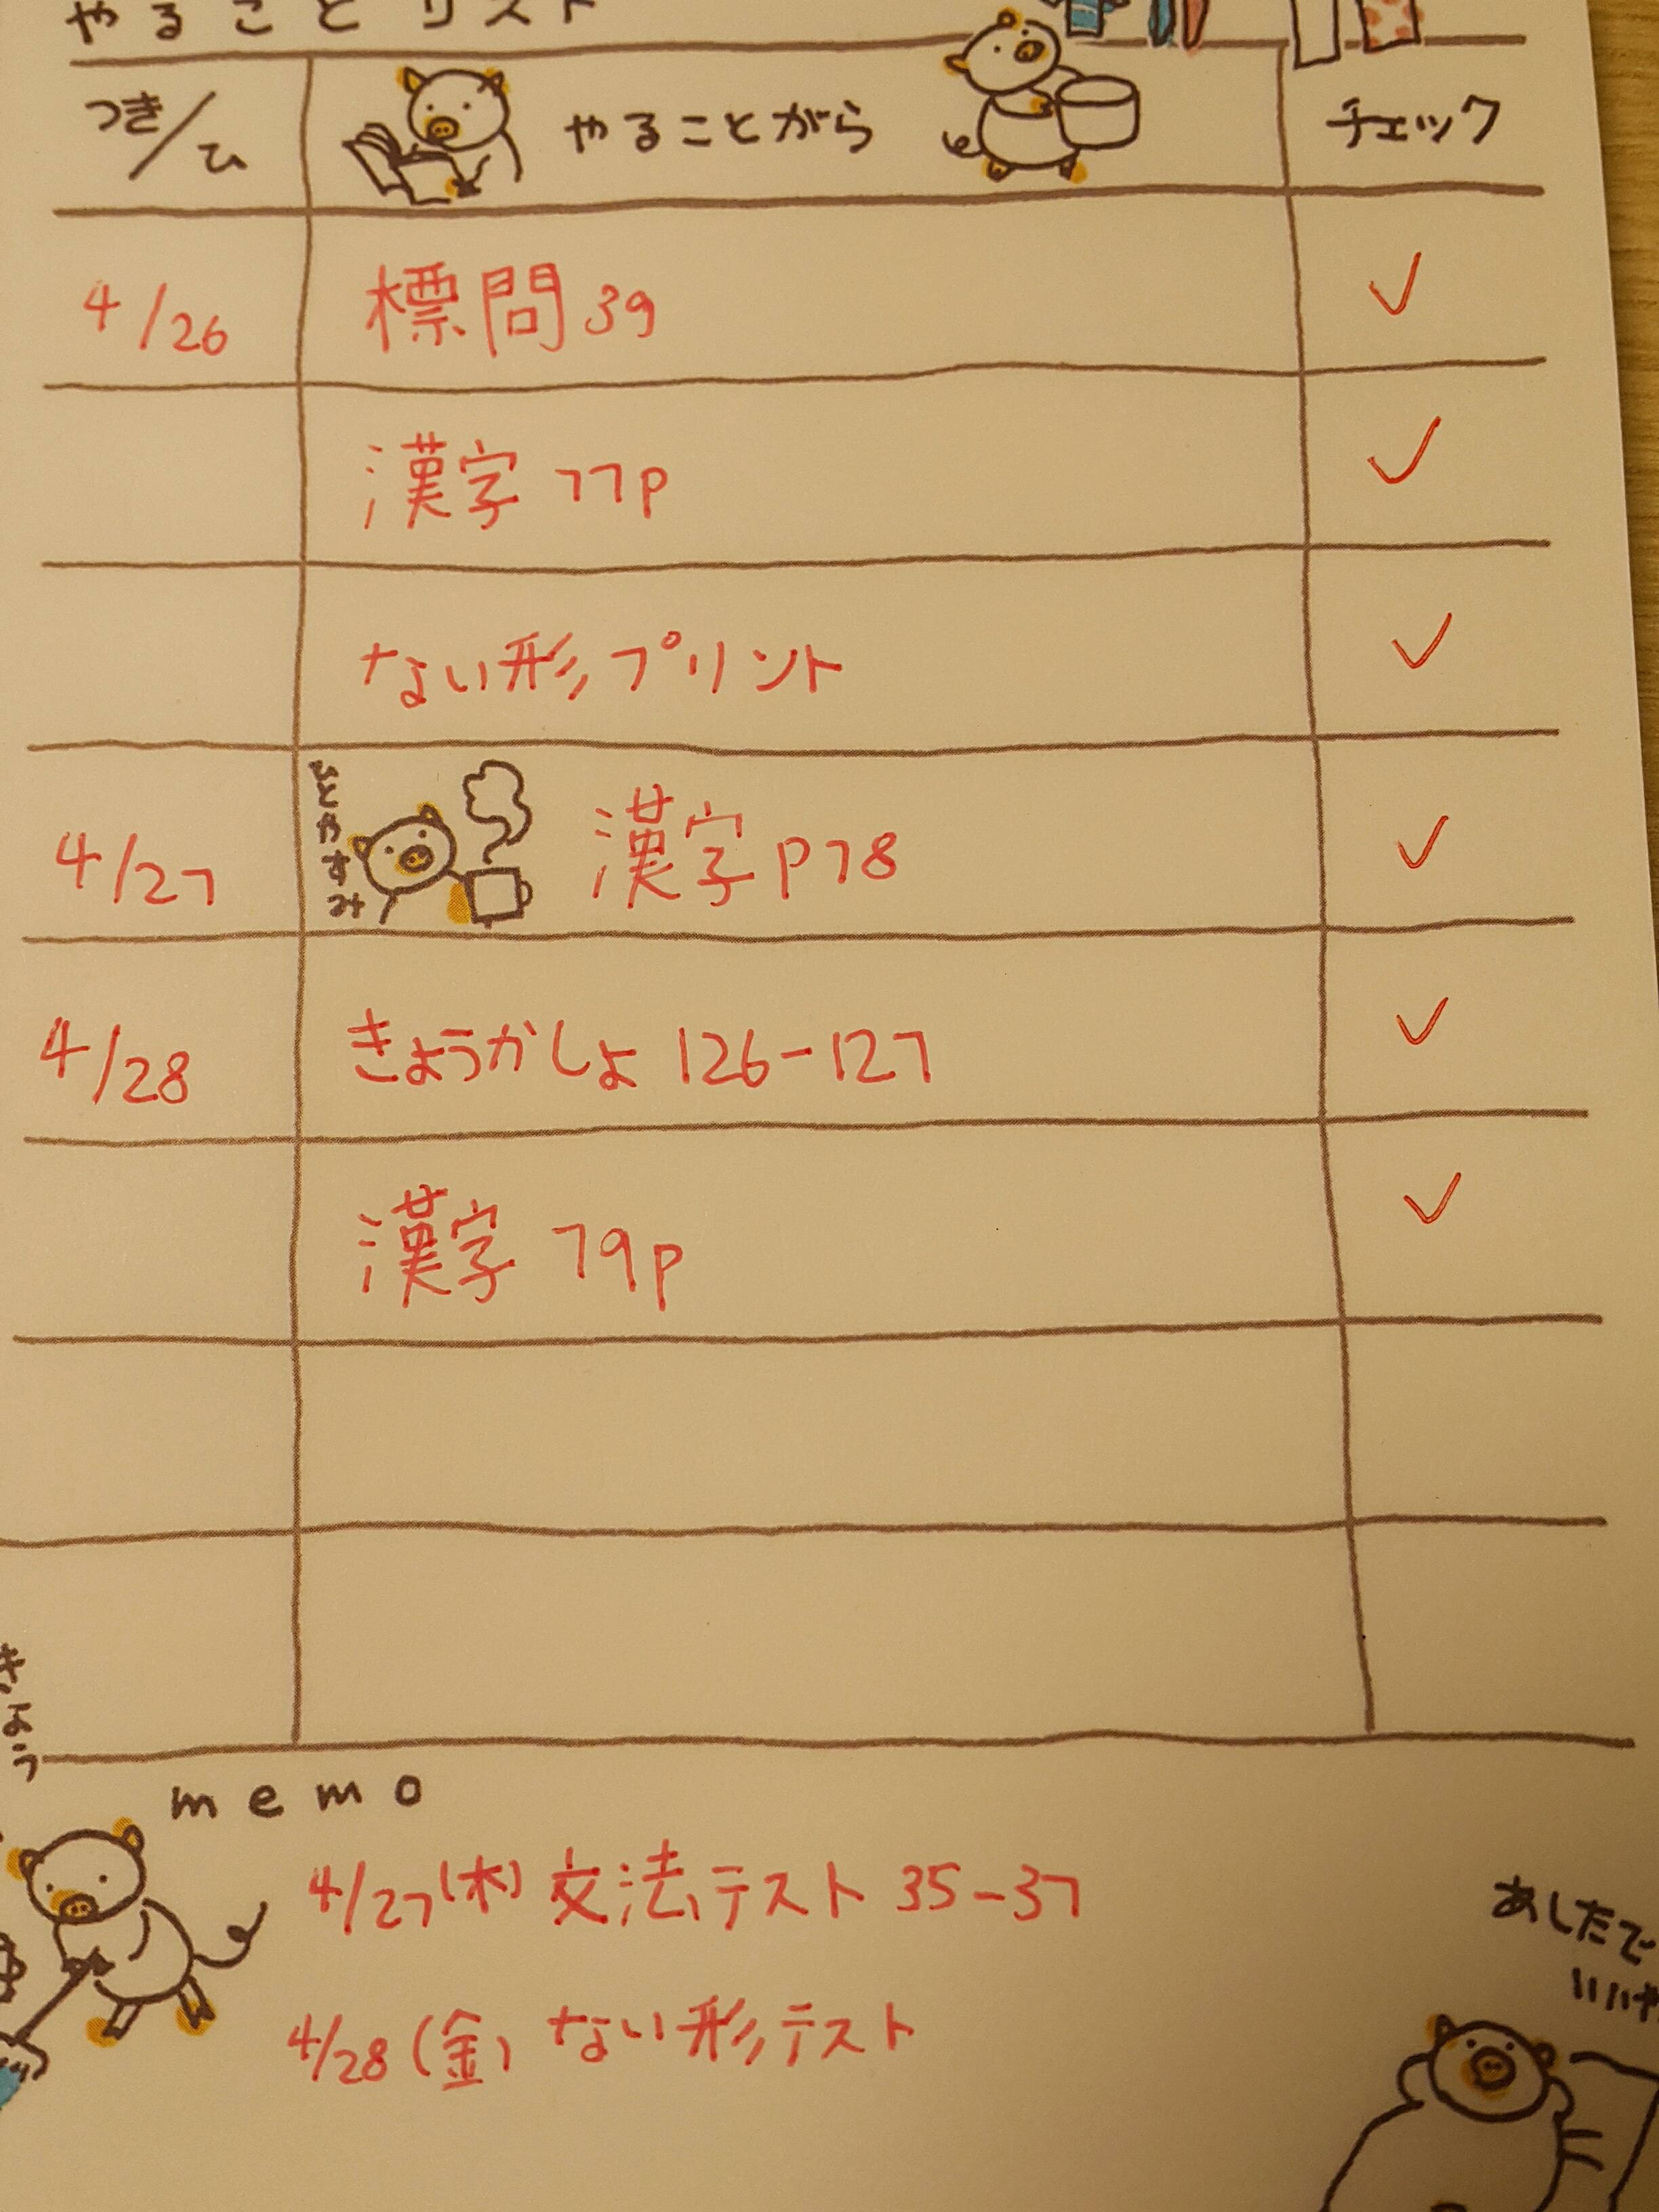 やることリスト
つき/ひ やることがら チェック
4/26 標問39 ✓
漢字 77p ✓
ない形プリント ✓
ひとやすみ
4/27 漢字 p78 ✓
4/28 きょうかしょ 126-127 ✓
漢字 79p ✓
きょう
memo
4/27(木) 文法テスト 35-37
4/28(金) ない形テスト
あしたで
いいや